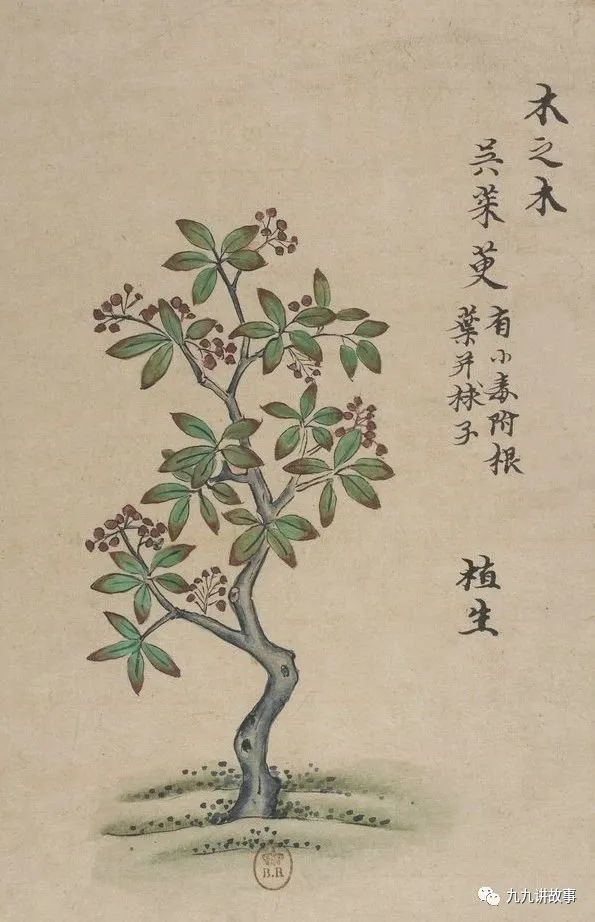 木之木
吳茱萸
有小毒附根
葉并梂子
植生
B.R
九九讲故事